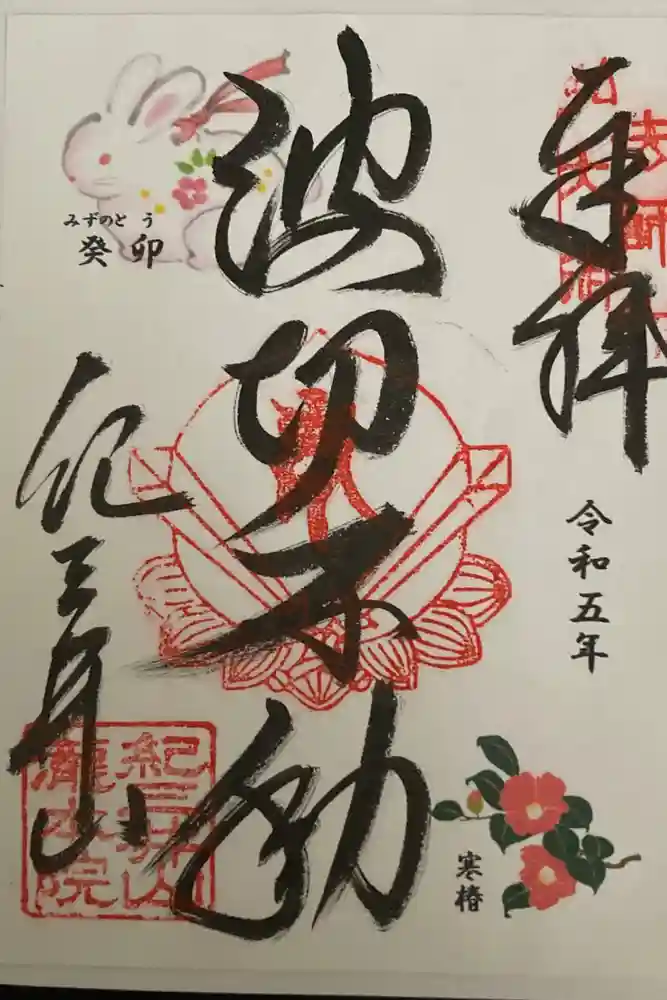 奉拝
令和五年
波切不動
みずのと う
癸卯
紀三井山
寒椿
紀三井山
瀧本院